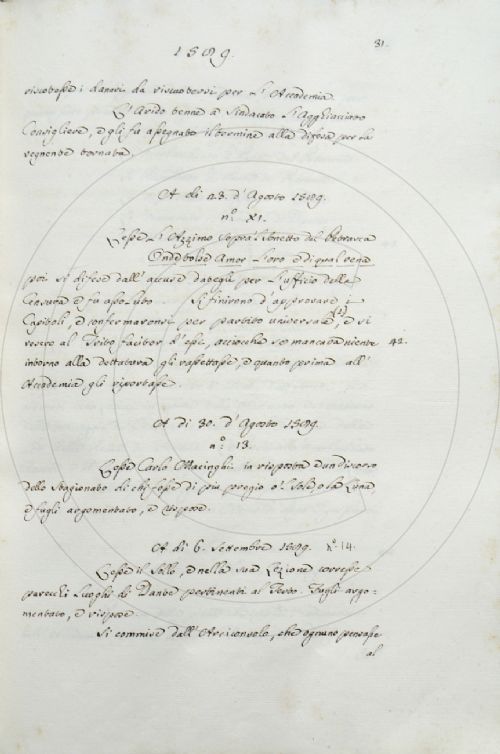 31.
1589.
riscotesse i danari da riscuotersi per l'Accademia.
L'Arido tenne a Sindacato l'Agghiacciato
Consigliere, e gli fu assegnato il termine alla difesa per la
vegnente tornata.
A dì 23. d'Agosto 1589.
n.º XI.
Lesse l'Azzimo sopra il Sonetto del Petrarca
Onde tolse Amor l'oro e di qual vena
poi si difese dall'accuse dategli per l'uffizio della
Censura e fu assoluto Si finirono d'approvare i
Capitoli, e confermaronsi per partito universale, (1) e si
resero al Trito facitor d'essi, acciocchè se mancava niente 42.
intorno alla dettatura gli rassettasse, e quanto prima all'
Accademia gli riportasse.
A dì 30. d'Agosto 1589.
n.º 13.
Lesse Carlo Macinghi in risposta d'un discorso
dello Stagionato di chi fosse di più pregio o 'l Sole, o la Luna,
e fugli argomentato, e rispose.
A dì 6. Settembre 1589. n.º 14.
Lesse il Sollo, e nella sua Lezione corresse
parecchi luoghi di Dante pertinenti al Testo. Fugli argo=
mentato, e rispose.
Si commise dall'Arciconsolo, che ognuno pensasse
al